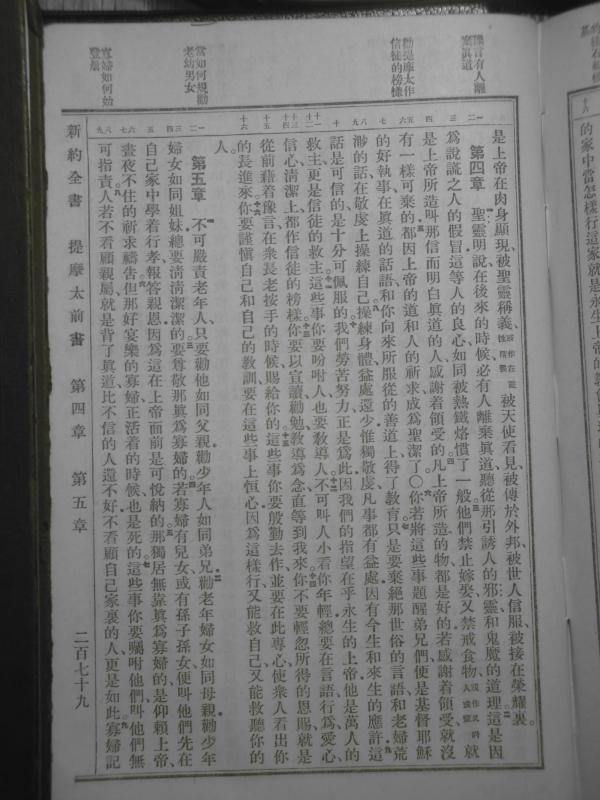 豫言有人離棄真道
勸提摩太作信徒的榜樣
當如何規勸老幼男女
寡婦如何始登册
是上帝在肉身顯現、被聖靈稱義、被天使看見、被傳於外邦、被世人信服、被接在榮耀裏。
第四章 聖靈明說在後來的時候、必有人離棄眞道、聽從那引誘人的邪靈和鬼魔的道理這是因
爲說謊之人的假冒這等人的良心如同被熱鐵烙慣了一般他們禁止嫁娶又禁戒食物、就
是上帝所造叫那信而明白眞道的人感謝着領受的凡上帝所造的物都是好的若感謝着領受、就沒
有一樣可棄的都因上帝的道和人的祈求成爲聖潔了〇你若將這些事題醒弟兄們便是基督耶穌
的好執事在眞道的話語和你向來所服從的善道上得了教育只是要棄絕那世俗的言語和老婦荒
渺的話在敬虔上操練自己操練身體益處還少惟獨敬虔凡事都有益處因有今生和來生的應許這
話是可信的是十分可佩服的我們勞苦努力正是爲此因我們的指望在乎永生的上帝他是萬人的
救主更是信徒的救主這些事你要吩咐人也要教導人不可叫人小看你年輕總要在言語行爲愛心、
信心淸潔上、都作信徒的榜樣你要以宣讀勸勉教導爲念直等到我來你不要輕忽所得的恩賜就是
從前藉着豫言在衆長老按手的時候賜給你的這些事你要殷勤去作並要在此專心使衆人看出你
的長進來你要謹愼自己和自己的教訓要在這些事上恒心因爲這樣行又能救自己又能救聽你的
人。
第五章 不可嚴責老年人、只要勸他如同父親勸少年人如同弟兄勸老年婦女如同母親勸少年
婦女如同姐妹總要淸淸潔潔的要尊敬那眞爲寡婦的若寡婦有兒女、或有孫子孫女便叫他們先在
自己家中學着行孝報答親恩因爲這在上帝面前是可悅納的那獨居無靠眞爲寡婦的是仰賴上帝、
晝夜不住的祈求禱告但那好宴樂的寡婦正活着的時候也是死的這些事你要囑咐他們叫他們無
可指責人若不看顧親屬就是背了眞道比不信的人還不好不看顧自己家裏的人更是如此寡婦記
新約全書 提摩太前書 第四章 第五章 二百七十九
的家中當怎樣行這家就是永生上帝的